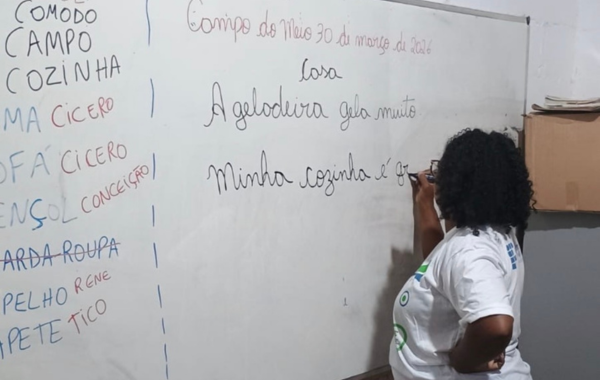 COMODO
CAMPO
COZINHA
MA CICERO
OFÁ CICERO
ENÇOL CONCEIÇÃO
ARDA-ROUPA
PELHO RENE
APETE TICO
Campo do Meio 30 di março de 2026
Casa
A geladeira gela muito
Minha cozinha é gr